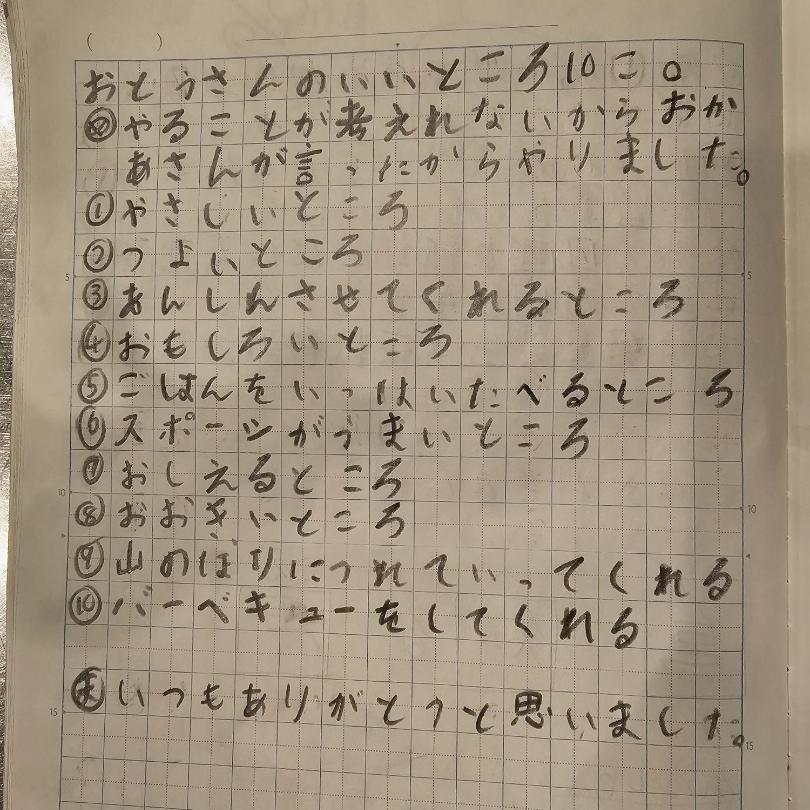 ( )
おとうさんのいいところ10こ。
やることが考えれないからおか
あさんが言ったからやりました。
①やさしいところ
②つよいところ
③あんしんさせてくれるところ
④おもしろいところ
⑤ごはんをいっはいたべるところ
⑥スポーツがうまいところ
⑦おしえるところ
⑧おおきいところ
⑨山のぼりにつれていってくれる
⑩バーベキューをしてくれる
いつもありがとうと思いました。
5
10
15
5
10
15